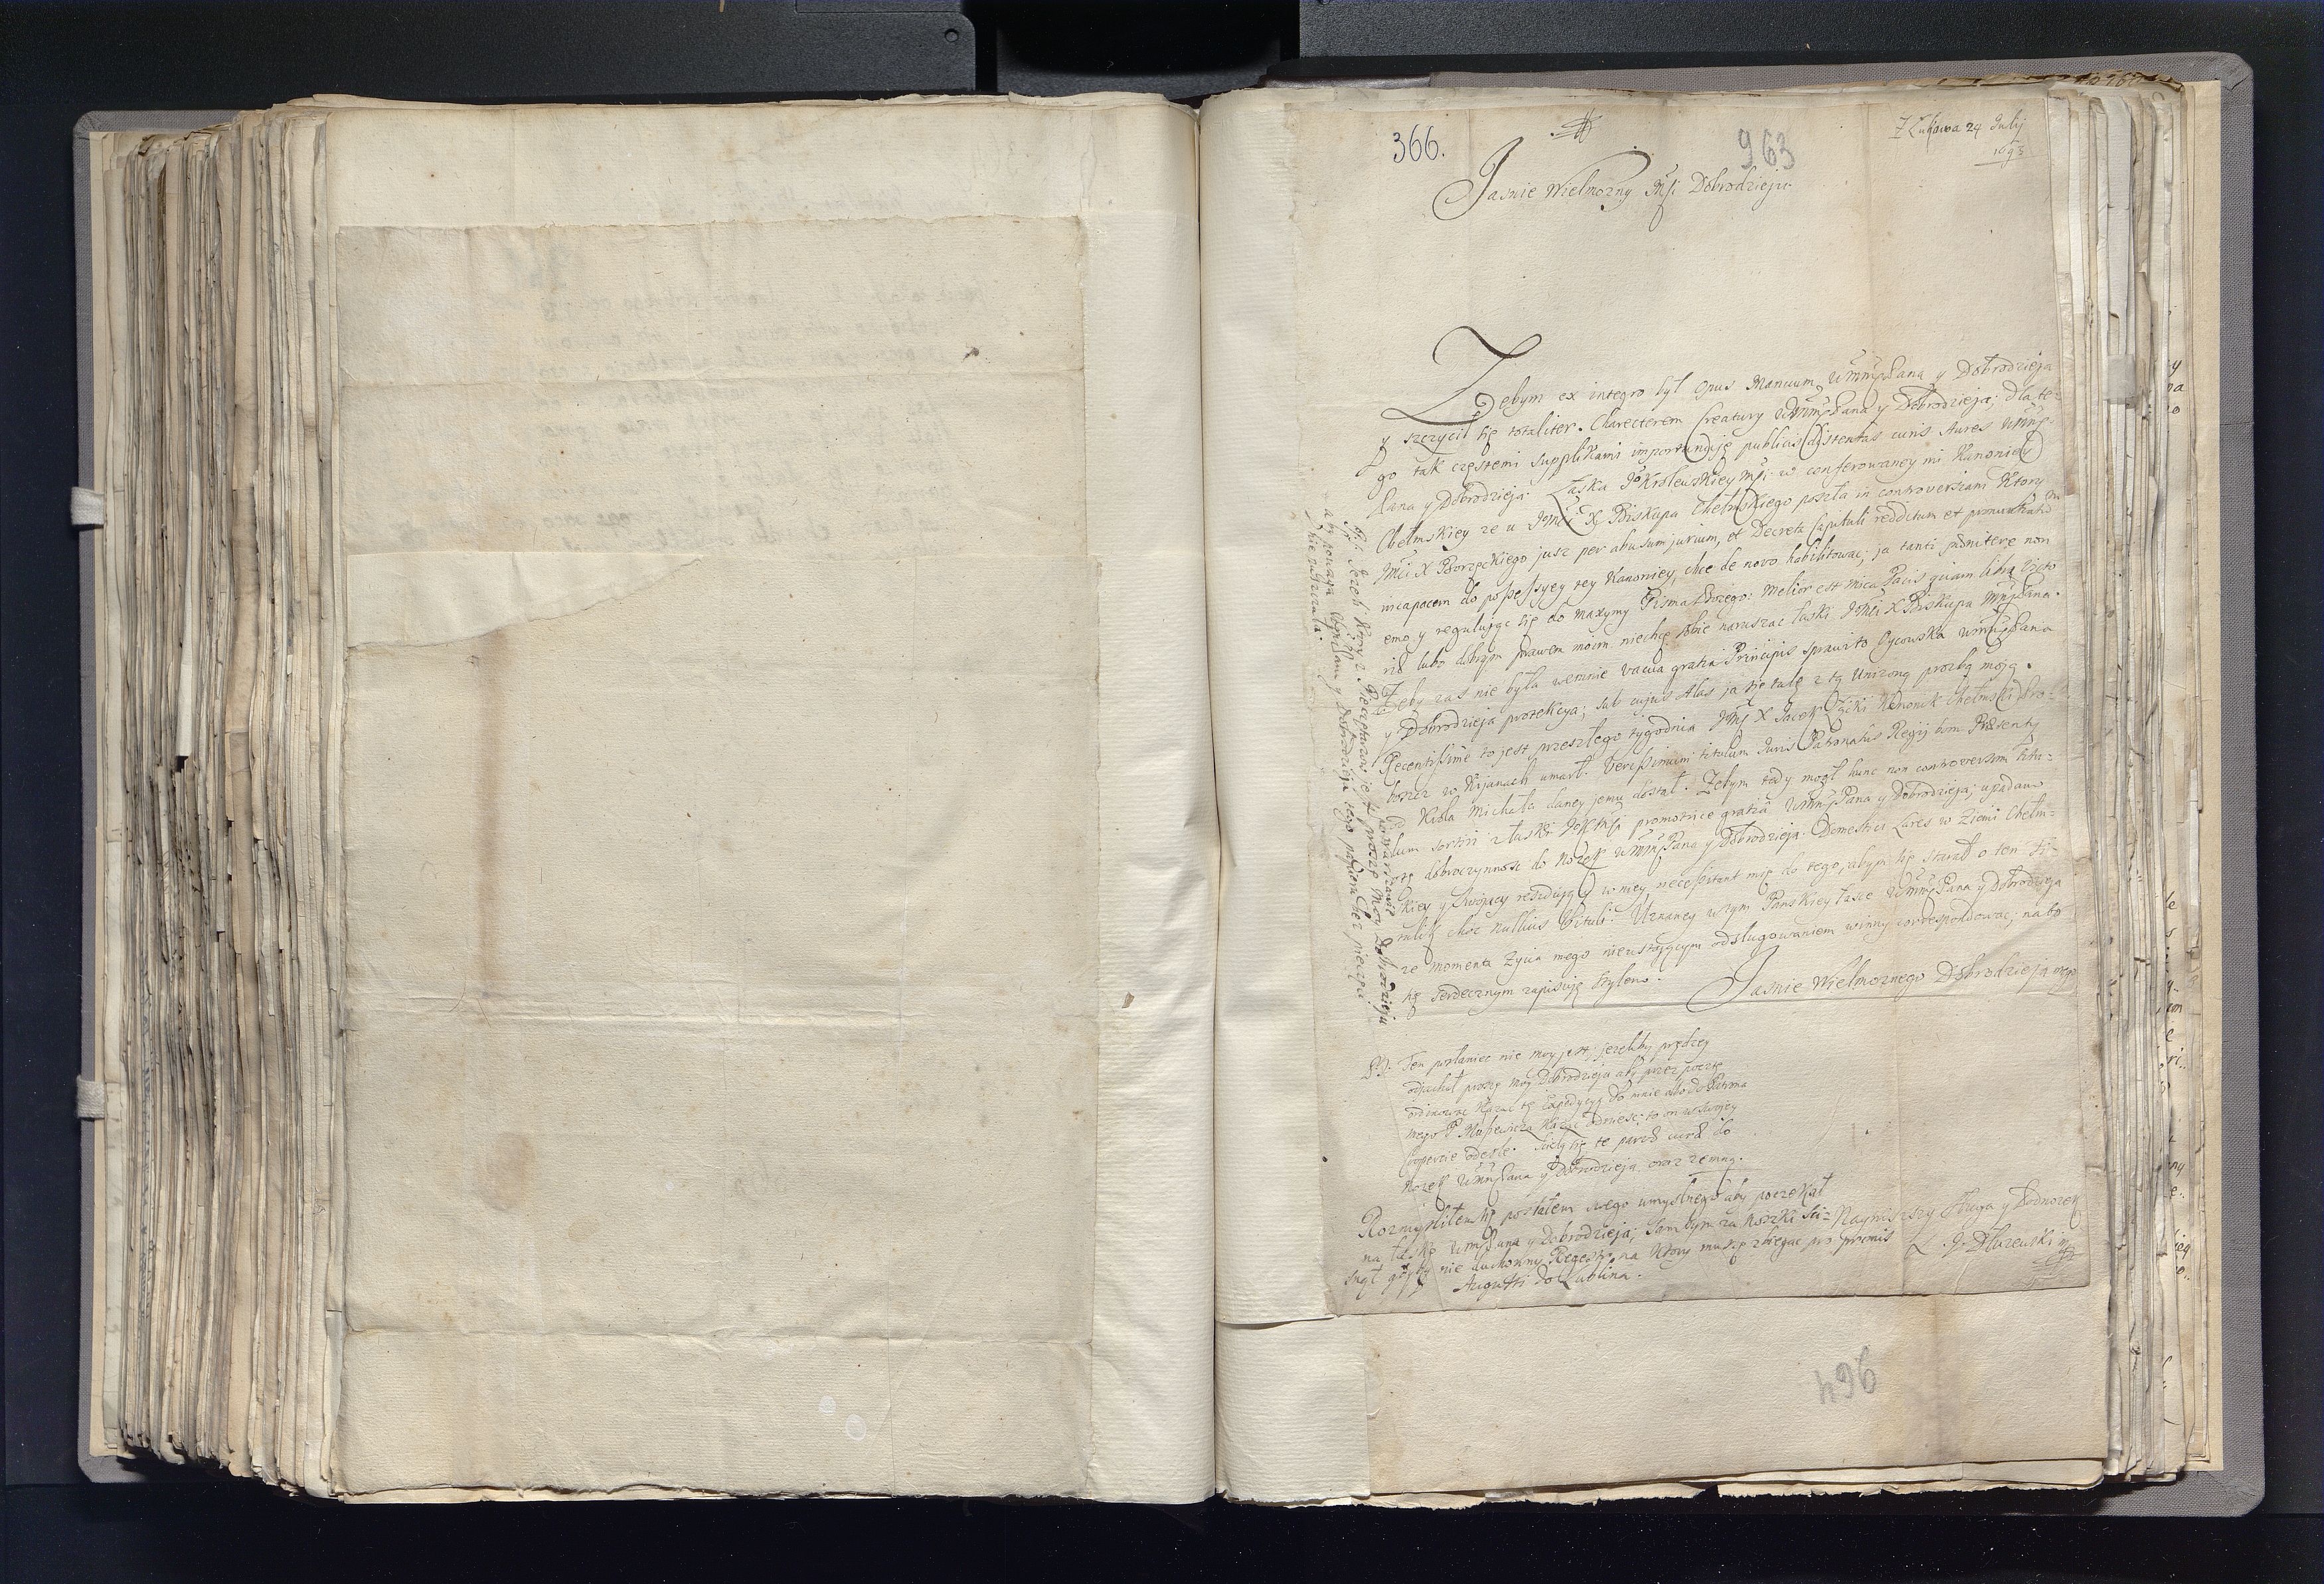 366.
963
Z Łukowa 24 Julij
1693
Jasnie Wielmozny Mśi Dobrodzieju.
Zebym ex integro był Opus Manuum WMMsPana y Dobrodzieja
y szczycił się totaliter Charecterem Creatury WMMsPana y Dobrodzieja; dlate-
go tak częstemi supplikami importunuię publicis distentas curis Aures WMMs
Pana y Dobrodzieja. Łaska JoKrolewskiey Msci w conferowaney mi Kanoniey
Chełmskiey ze u Jmci X Biskupa Chełmskiego poszła in controversiam Ktory
Jmci X Borzęckiego jusz per abusum jurium, et Decreta Capituli redditum et
incapacem do possessyey tey Kanoniey, chce de novo habilitowac; ja tanti non
emo y reguluiąc się do maxymy Pisma Bożego: Melior est mica Pacis quam
lubo dobrym prawem moim niechcę sobie naruszac łaski Jmci X Biskupa MMsPana.
Zeby zas nie była wemnie vacua gratia Principis sprawi to Oycowska WMMsPana
y Dobrodzieja protekcya; sub cujus Alas ja się tulę z tą Unizoną prozbą moją.
Recentissime to jest przeszłego tygodnia Jmc X Jacek Kanonik Chełmski Pro-
boszcz w Kijanach umarł. Verissimum titulum Juris Patronatus Regij bom Præsenty
Krola Michała daney jemu dostał. Zebym tedy mogł hunc non controversum titu-
lum sortiri z łaski JoKMsci promotrice gratiâ WMMsPana y Dobrodzieja; upadam
o tę dobroczynnosc do Nozek WMMsPana y Dobrodzieja. Domestici Lares w Ziemi Chełm-
skiey y residujący w niey necessitant mię do tego, abym się starał o ten ti-
tulik choc nullius Vituli. Uznaney w tym Panskiey łasce WMMsPana y Dobrodzieja
ze momenta Zycia mego nieustającym odsługowaniem winny correspondowac; na to
się serdecznym zapisuję stylem.
Jasnie Wielmoznego Dobrodzieja mego
PS. Ten posłaniec nie moy jest; jezeliby prędzey
odjachał proszę moy Dobrodzieju aby przez pocztę
ordinowac Kazac tę expedycyą do mnie albo do
mego P. Kazac odniesc: to on w swojey
Copercie odesle. Scielą się te do
Nozek WMMsPana y Dobrodzieja, oraz zemną.
Rozmysliłem się posłałem swego umyslnego aby poczekał
na łaskę WMMsPana y Dobrodzieja; Sam bym za Nozki sci-
snął gdyby nie duchowny Regestr, na Ktory muszę zbiegac pro primis
Augusti do Lublina.
Nayniższy Sługa y Podnozek
J. Dłuzewski
P.S. Jezeli Ktory z Pieczętarzow jest w Warszawie proszę Moy Dobrodzieju
aby powaga WMMsPana y Dobrodzieja tego bez pieczęci
nie zaszczała.
964